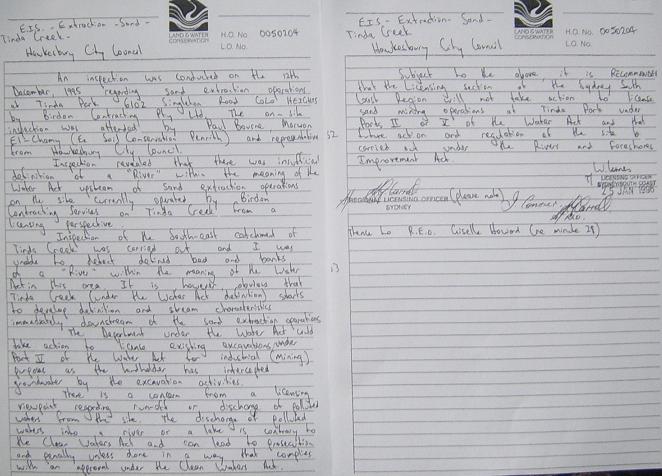 E.I.S. - Extraction - Sand -
Tinda Creek -
Hawkesbury City Council
LAND & WATER
CONSERVATION
H.O. No. 0050204
L.O. No.
An inspection was conducted on the 12th
December, 1995 regarding sand extraction operations
at Tinda Park 6102 Singleton Road Colo Heights
by Birdon Contracting Pty Ltd. The on-site
inspection was attended by Paul Bourne, Marwan
El-Chamy (Ex Soil Conservation Penrith) and representative
from Hawkesbury City Council.
Inspection revealed that there was insufficient
definition of a "River" within the meaning of the
Water Act upstream of Sand extraction operations
on the site currently operated by Birdon
Contracting Services on Tinda Creek from a
licensing perspective.
Inspection of the South-east catchment of
Tinda Creek was carried out and I was
unable to detect defined bed and banks
of a "River" within the meaning of the Water
Act in this area. It is however obvious that
Tinda Creek (under the Water Act definition) starts
to develop definition and stream characteristics
immediately downstream of the sand extraction operations.
The Department under the Water Act could
take action to license existing excavations under
Part V of the Water Act for industrial (mining)
purposes as the landholder has intercepted
groundwater by the excavation activities.
There is a concern from a licensing
viewpoint regarding run-off or discharge of polluted
waters from the site. The discharge of polluted
waters into a river or a lake is contrary to
the Clean Waters Act and can lead to prosecution
and penalty unless done in a way that complies
with an approval under the Clean Waters Act.
E.I.S. - Extraction - Sand -
Tinda Creek
Hawkesbury City Council
LAND & WATER
CONSERVATION
H.O. No. 0050204
L.O. No.
Subject to the above it is RECOMMENDED
that the Licensing section of the Sydney South
Coast Region will not take action to license
sand mining operations at Tinda Park under
Parts II or V of the Water Act and that
future action and regulation of the site be
carried out under the Rivers and Foreshores
Improvement Act.
LICENSING OFFICER
SYDNEY/SOUTH COAST
25 JAN 1996
REGIONAL LICENSING OFFICER (please note)
SYDNEY
Thanks to R.E.O. Giselle Howard (re minute 28)